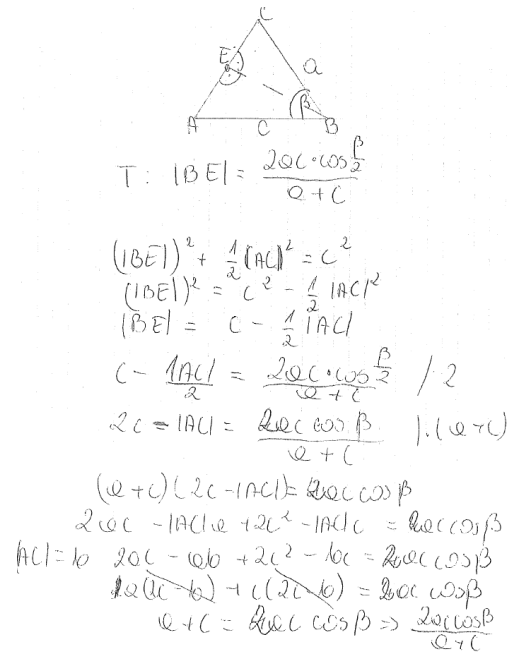 C
E
a
β
A c B
T: |BE| = \frac{2ac \cdot \cos\frac{β}{2}}{a+c}
(|BE|)^2 + \frac{1}{2}|AC|^2 = c^2
(|BE|)^2 = c^2 - \frac{1}{2}|AC|^2
|BE| = c - \frac{1}{2}|AC|
c - \frac{|AC|}{2} = \frac{2ac \cdot \cos\frac{β}{2}}{a+c} /·2
2c - |AC| = \frac{2ac \cos β}{a+c} |·(a+c)
(a+c)(2c-|AC|) = 2ac cos β
2ac - |AC|a + 2c^2 - |AC|c = 2ac cos β
|AC| = b 2ac - ab + 2c^2 - bc = 2ac cos β
a(2c-b) + c(2c-b) = 2ac cos β
a+c = 2ac cos β => \frac{2ac cos β}{a+c}